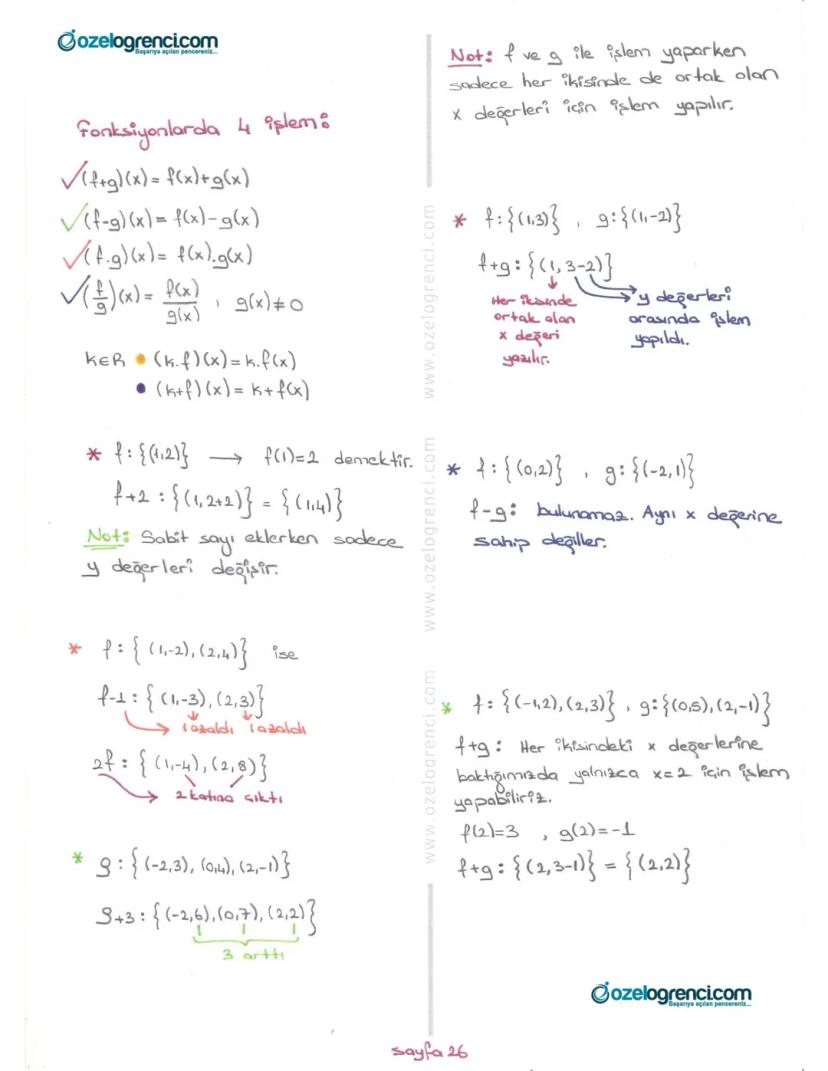 ozelogrenci.com
Başarıya açılan pencereniz...
Fonksiyonlarda 4 işlem:
(f+g)(x) = f(x)+g(x)
(f-g)(x) = f(x)-g(x)
(f.g)(x) = f(x).g(x)
(f/g)(x) = f(x)/g(x) , g(x)≠0
k∈R • (k.f)(x) = k.f(x)
• (k+f)(x) = k+f(x)
* f:{(1,2)} → f(1)=2 demektir.
f+2 : {(1,2+2)} = {(1,4)}
Not: Sabit sayı eklerken sadece
y değerleri değişir.
* f:{(1,-2),(2,4)} ise
f-1 : {(1,-3),(2,3)}
1 azaldı 1 azaldı
2f : {(1,-4),(2,8)}
2 katına çıktı
* g:{(-2,3),(0,4),(2,-1)}
g+3 : {(-2,6),(0,7),(2,2)}
3 arttı
Not: f ve g ile işlem yaparken
sadece her ikisinde de ortak olan
x değerleri için işlem yapılır.
* f:{(1,3)} , g:{(1,-2)}
f+g : {(1,3-2)}
Her ikisinde
ortak olan
x değeri
yazılır.
y değerleri
arasında işlem
yapıldı.
* f:{(0,2)} , g:{(-2,1)}
f-g: bulunamaz. Aynı x değerine
sahip değiller.
* f:{(-1,2),(2,3)} , g:{(0,5),(2,-1)}
f+g : Her ikisindeki x değerlerine
baktığımızda yalnızca x=2 için işlem
yapabiliriz.
f(2)=3 , g(2)=-1
f+g : {(2,3-1)} = {(2,2)}
www.ozelogrenci.com
www.ozelogrenci.com
www.ozelogrenci.com
ozelogrenci.com
Başarıya açılan pencereniz...
sayfa 26